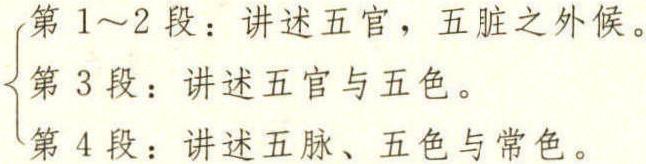 第1～2段：讲述五官，五脏之外候。
第3段：讲述五官与五色。
第4段：讲述五脉、五色与常色。